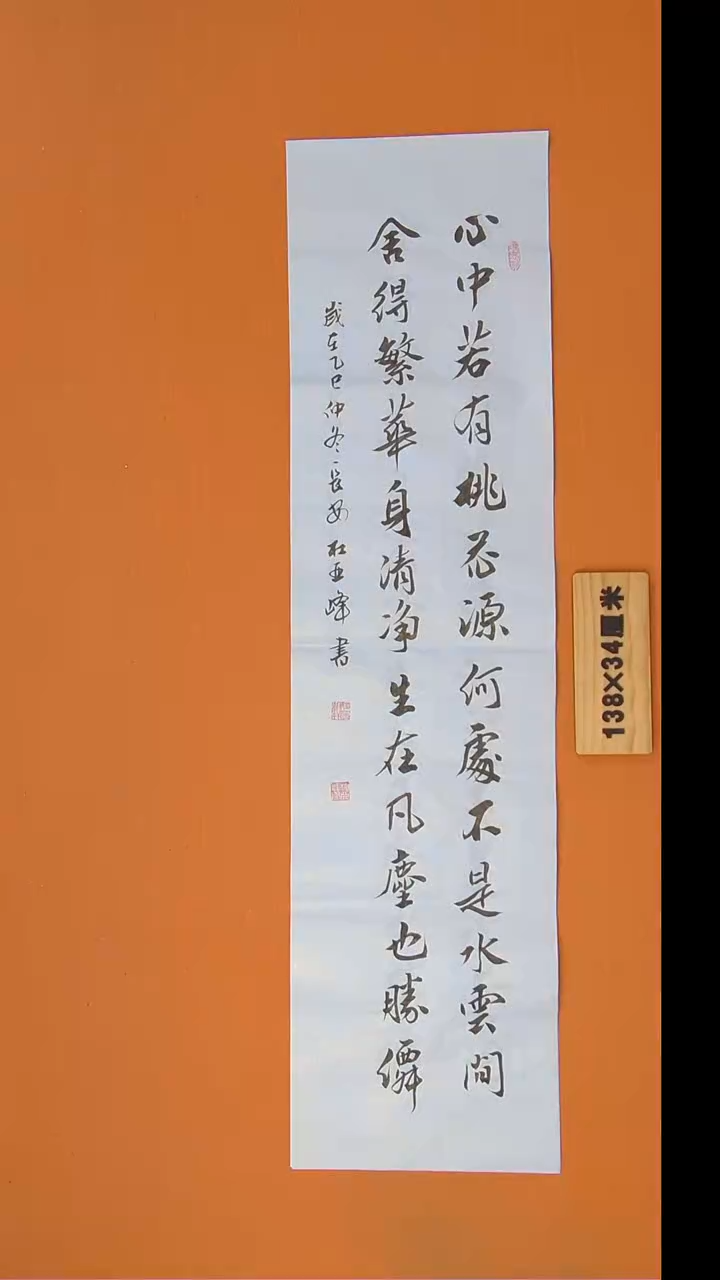 心中若有桃花源何處不是水雲間
舍得繁華身清净生在凡塵也勝僊
歲在乙巳仲冬長安杜亚峰書
138×34厘米